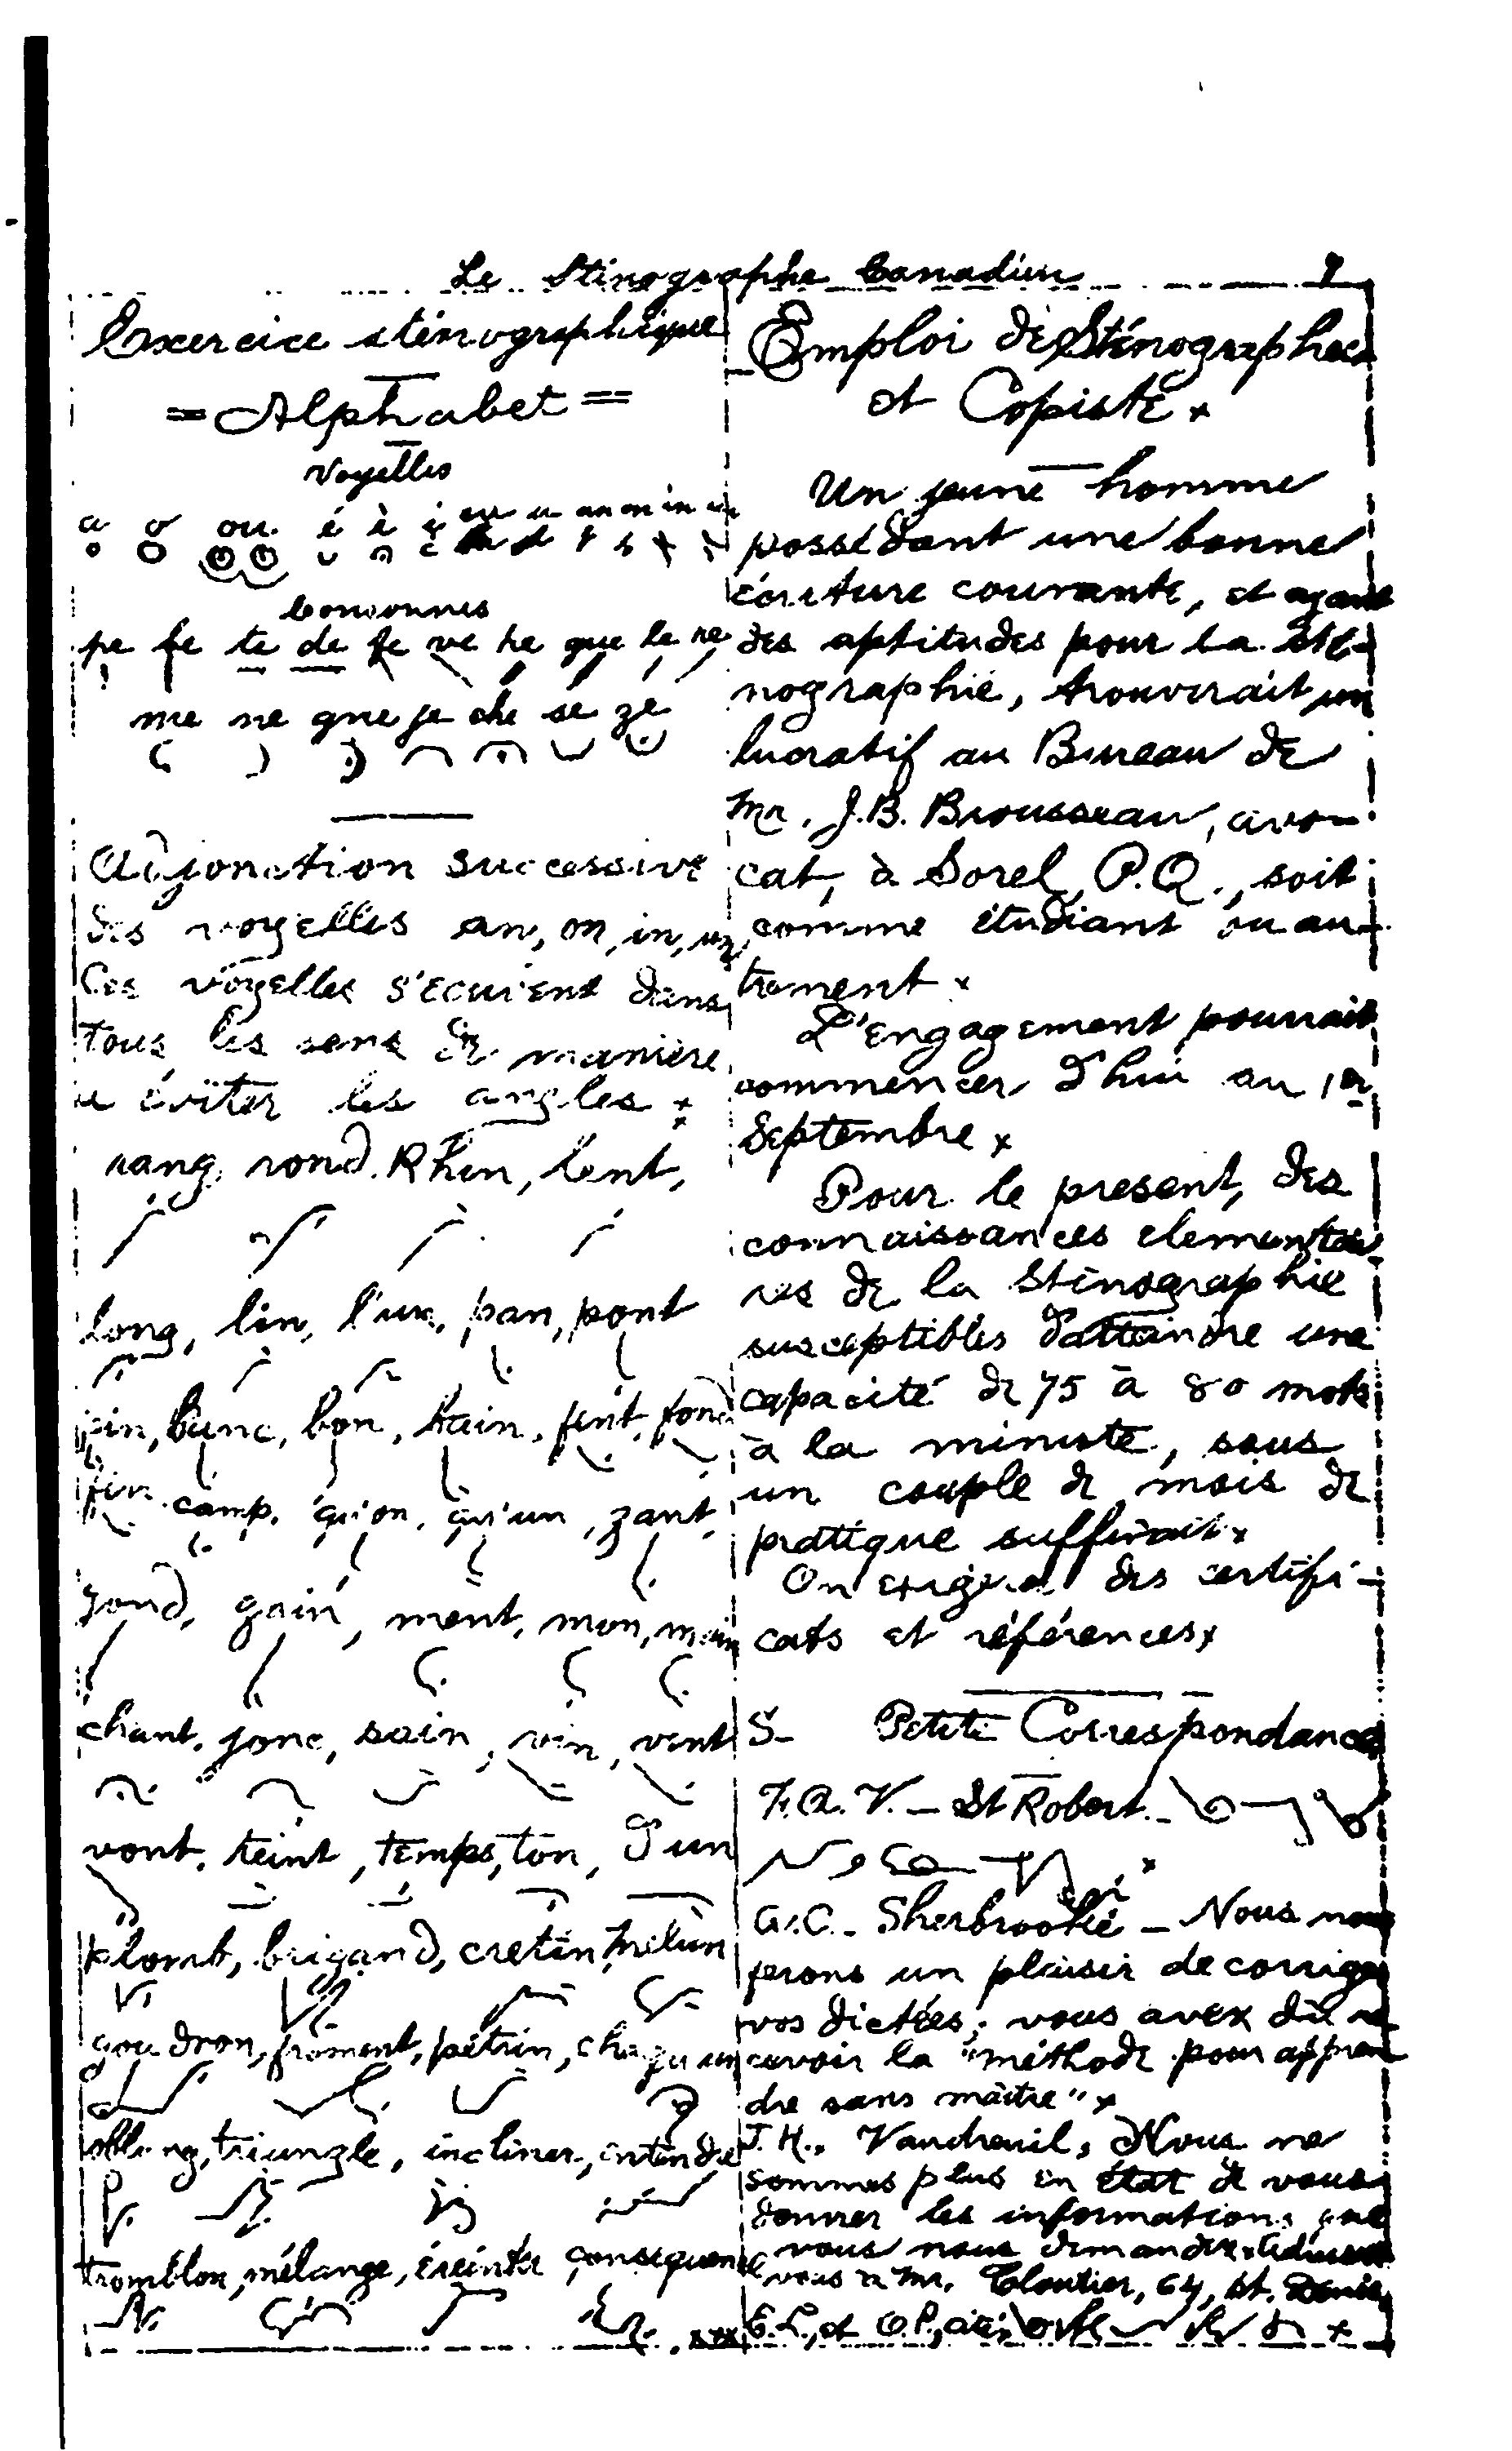 Le Sténographe Canadien
Exercice sténographique
= Alphabet =
Voyelles
a o ou é è i eu u an on in un
Consonnes
pe be te de fe ve ke gue le re
me ne gne je che se ze
Adjonction successive
des voyelles an, on, in, un,
Ces voyelles s'écrivent dans
tous les sens de manière
à éviter les angles x
rang, rond, Rhin, lent,
long, lin, l'un, pan, pont
pin, banc, bon, bain, fent, fond
fin, camp, qu'on, qu'un, gant,
gond, gain, ment, mon, main
chant, jonc, sain, vin, vent
vont, teint, temps, ton, d'un
plomb, brigand, cretin, Melun
goudron, froment, pétrin, chaqu'un
oblong, triangle, incliner, entendre
tromblon, mélange, éreinter, conséquence
Emploi de Sténographe
et Copiste x
Un jeune homme
possédant une bonne
écriture courante, et ayant
des aptitudes pour la sté-
nographie, trouverait un
lucratif au Bureau de
Mr. J.B. Brousseau, avo-
cat, à Sorel, P.Q., soit
comme étudiant ou au-
trement x
L'engagement pourrait
commencer d'hui au 1er
Septembre x
Pour le present, des
connaissances elementai-
res de la Sténographie
susceptibles d'atteindre une
capacité de 75 à 80 mots
à la minute, sous
un couple de mois de
pratique suffirait x
On exigera des certifi-
cats et références x
S- Petite Correspondance
F.A.V. - St Robert. -
G.C. - Sherbrooke - Nous nous
ferons un plaisir de corriger
vos dictées; vous avez dû re-
cevoir la "méthode pour appren-
dre sans maître" x
J.H., Vaudreuil, Nous ne
sommes plus en état de vous
donner les informations que
vous nous demandez. Adressez
vous à Mr. Cloutier, 64, St. Denis,
E.L., et O.P.,